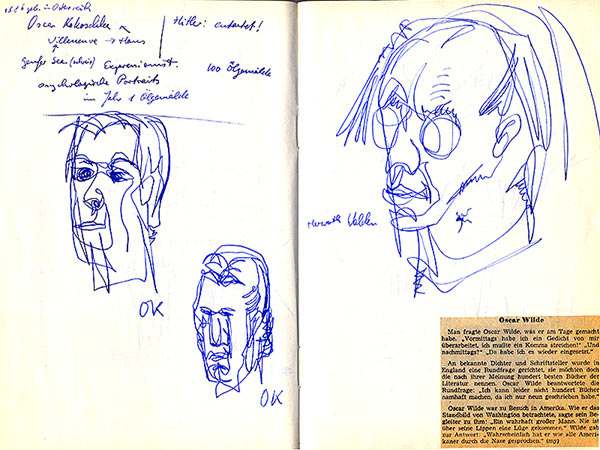 1886 geb. in Österreich
Oscar Kokoschka
Villeneuve → Haus
Genfer See (Schweiz) Expressionist.
psychologische Portraits
im Jahr 1 Ölgemälde
Hitler: entartet!
100 Ölgemälde
OK
OK
Herwarth Walden
Oscar Wilde
Man fragte Oscar Wilde, was er am Tage gemacht
habe. „Vormittags habe ich ein Gedicht von mir
überarbeitet, ich mußte ein Komma streichen!" „Und
nachmittags?" „Da habe ich es wieder eingesetzt."
An bekannte Dichter und Schriftsteller wurde in
England eine Rundfrage gerichtet, sie möchten doch
die nach ihrer Meinung hundert besten Bücher der
Literatur nennen. Oscar Wilde beantwortete die
Rundfrage: „Ich kann leider nicht hundert Bücher
namhaft machen, da ich nur neun geschrieben habe."
Oscar Wilde war zu Besuch in Amerika. Wie er das
Standbild von Washington betrachtete, sagte sein Be-
gleiter zu ihm: „Ein wahrhaft großer Mann. Nie ist
über seine Lippen eine Lüge gekommen." Wilde gab
zur Antwort: „Wahrscheinlich hat er wie alle Ameri-
kaner durch die Nase gesprochen." (my)